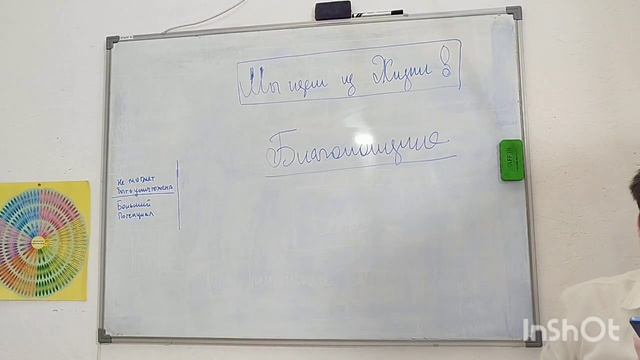 Мы идем из Жизни!
Благополучие
Не может
быть уничтожена
Больший
Потенциал
InShOt